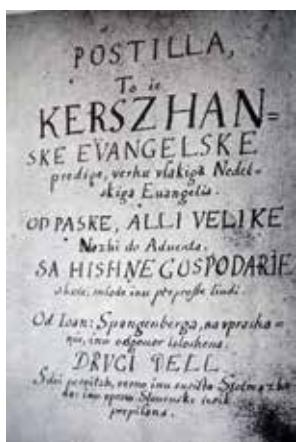 POSTILLA,
To ie
KERSZHAN=
SKE EVANGELSKE
predige, verhu vſakiga Nedel-
ſkiga Euangelia.
OD PASKE, ALLI VELIKE
Nozhi do Aduenta.
SA HISHNE GOSPODARIE
mlade inu preproſte liudi.
Od Ioan: Spangenberga, na vpraſha-
nie, inu odgouor
DRVGI DEILL.
inu
inu Slouenſki
prepiſana.